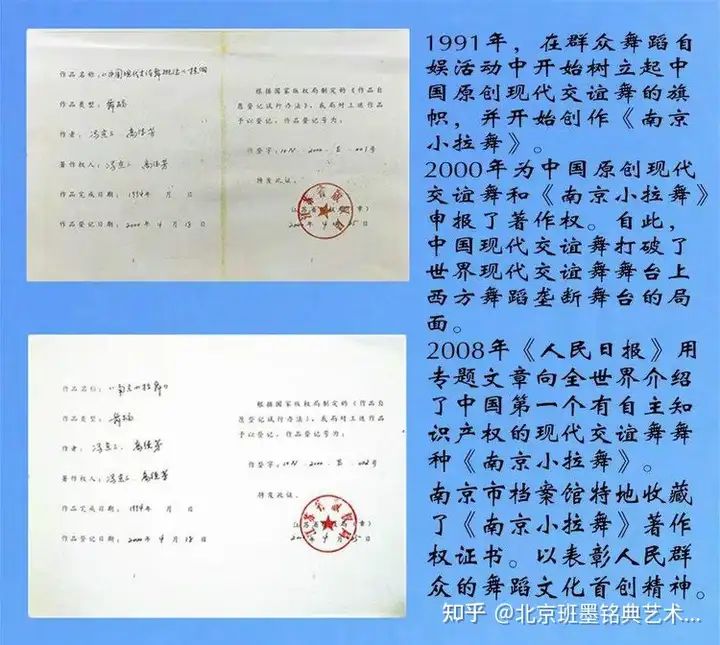 作品名称:
作品类型: 舞蹈
作者: 冯京二 高佳芳
著作权人: 冯京二 高佳芳
作品完成日期: 1994年 月 日
作品登记日期: 2000年 4月 18日
根据国家版权局制定的《作品自
愿登记试行办法》,我局对上述作品
予以登记,作品登记号为:
作登字:10-N-2000-E-001号
特发此证。
作品名称: 《南京小拉舞》
作品类型: 舞蹈
作者: 冯京二 高佳芳
著作权人: 冯京二 高佳芳
作品完成日期: 1994年 月 日
作品登记日期: 2000年 4月 18日
根据国家版权局制定的《作品自
愿登记试行办法》,我局对上述作品
予以登记,作品登记号为:
作登字:10-N-2000-E-002号
特发此证。
1991年,在群众舞蹈自
娱活动中开始树立起中
国原创现代交谊舞的旗
帜,并开始创作《南京
小拉舞》。
2000年为中国原创现代
交谊舞和《南京小拉舞》
申报了著作权。自此,
中国现代交谊舞打破了
世界现代交谊舞舞台上
西方舞蹈垄断舞台的局
面。
2008年《人民日报》用
专题文章向全世界介绍
了中国第一个有自主知
识产权的现代交谊舞舞
种《南京小拉舞》。
南京市档案馆特地收藏
了《南京小拉舞》著作
权证书。以表彰人民群
众的舞蹈文化首创精神。
知乎 @北京班墨铭典艺术...